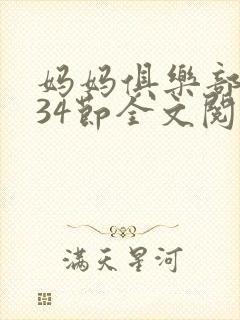 妈妈俱樂部
34節全文閱
滿天星河